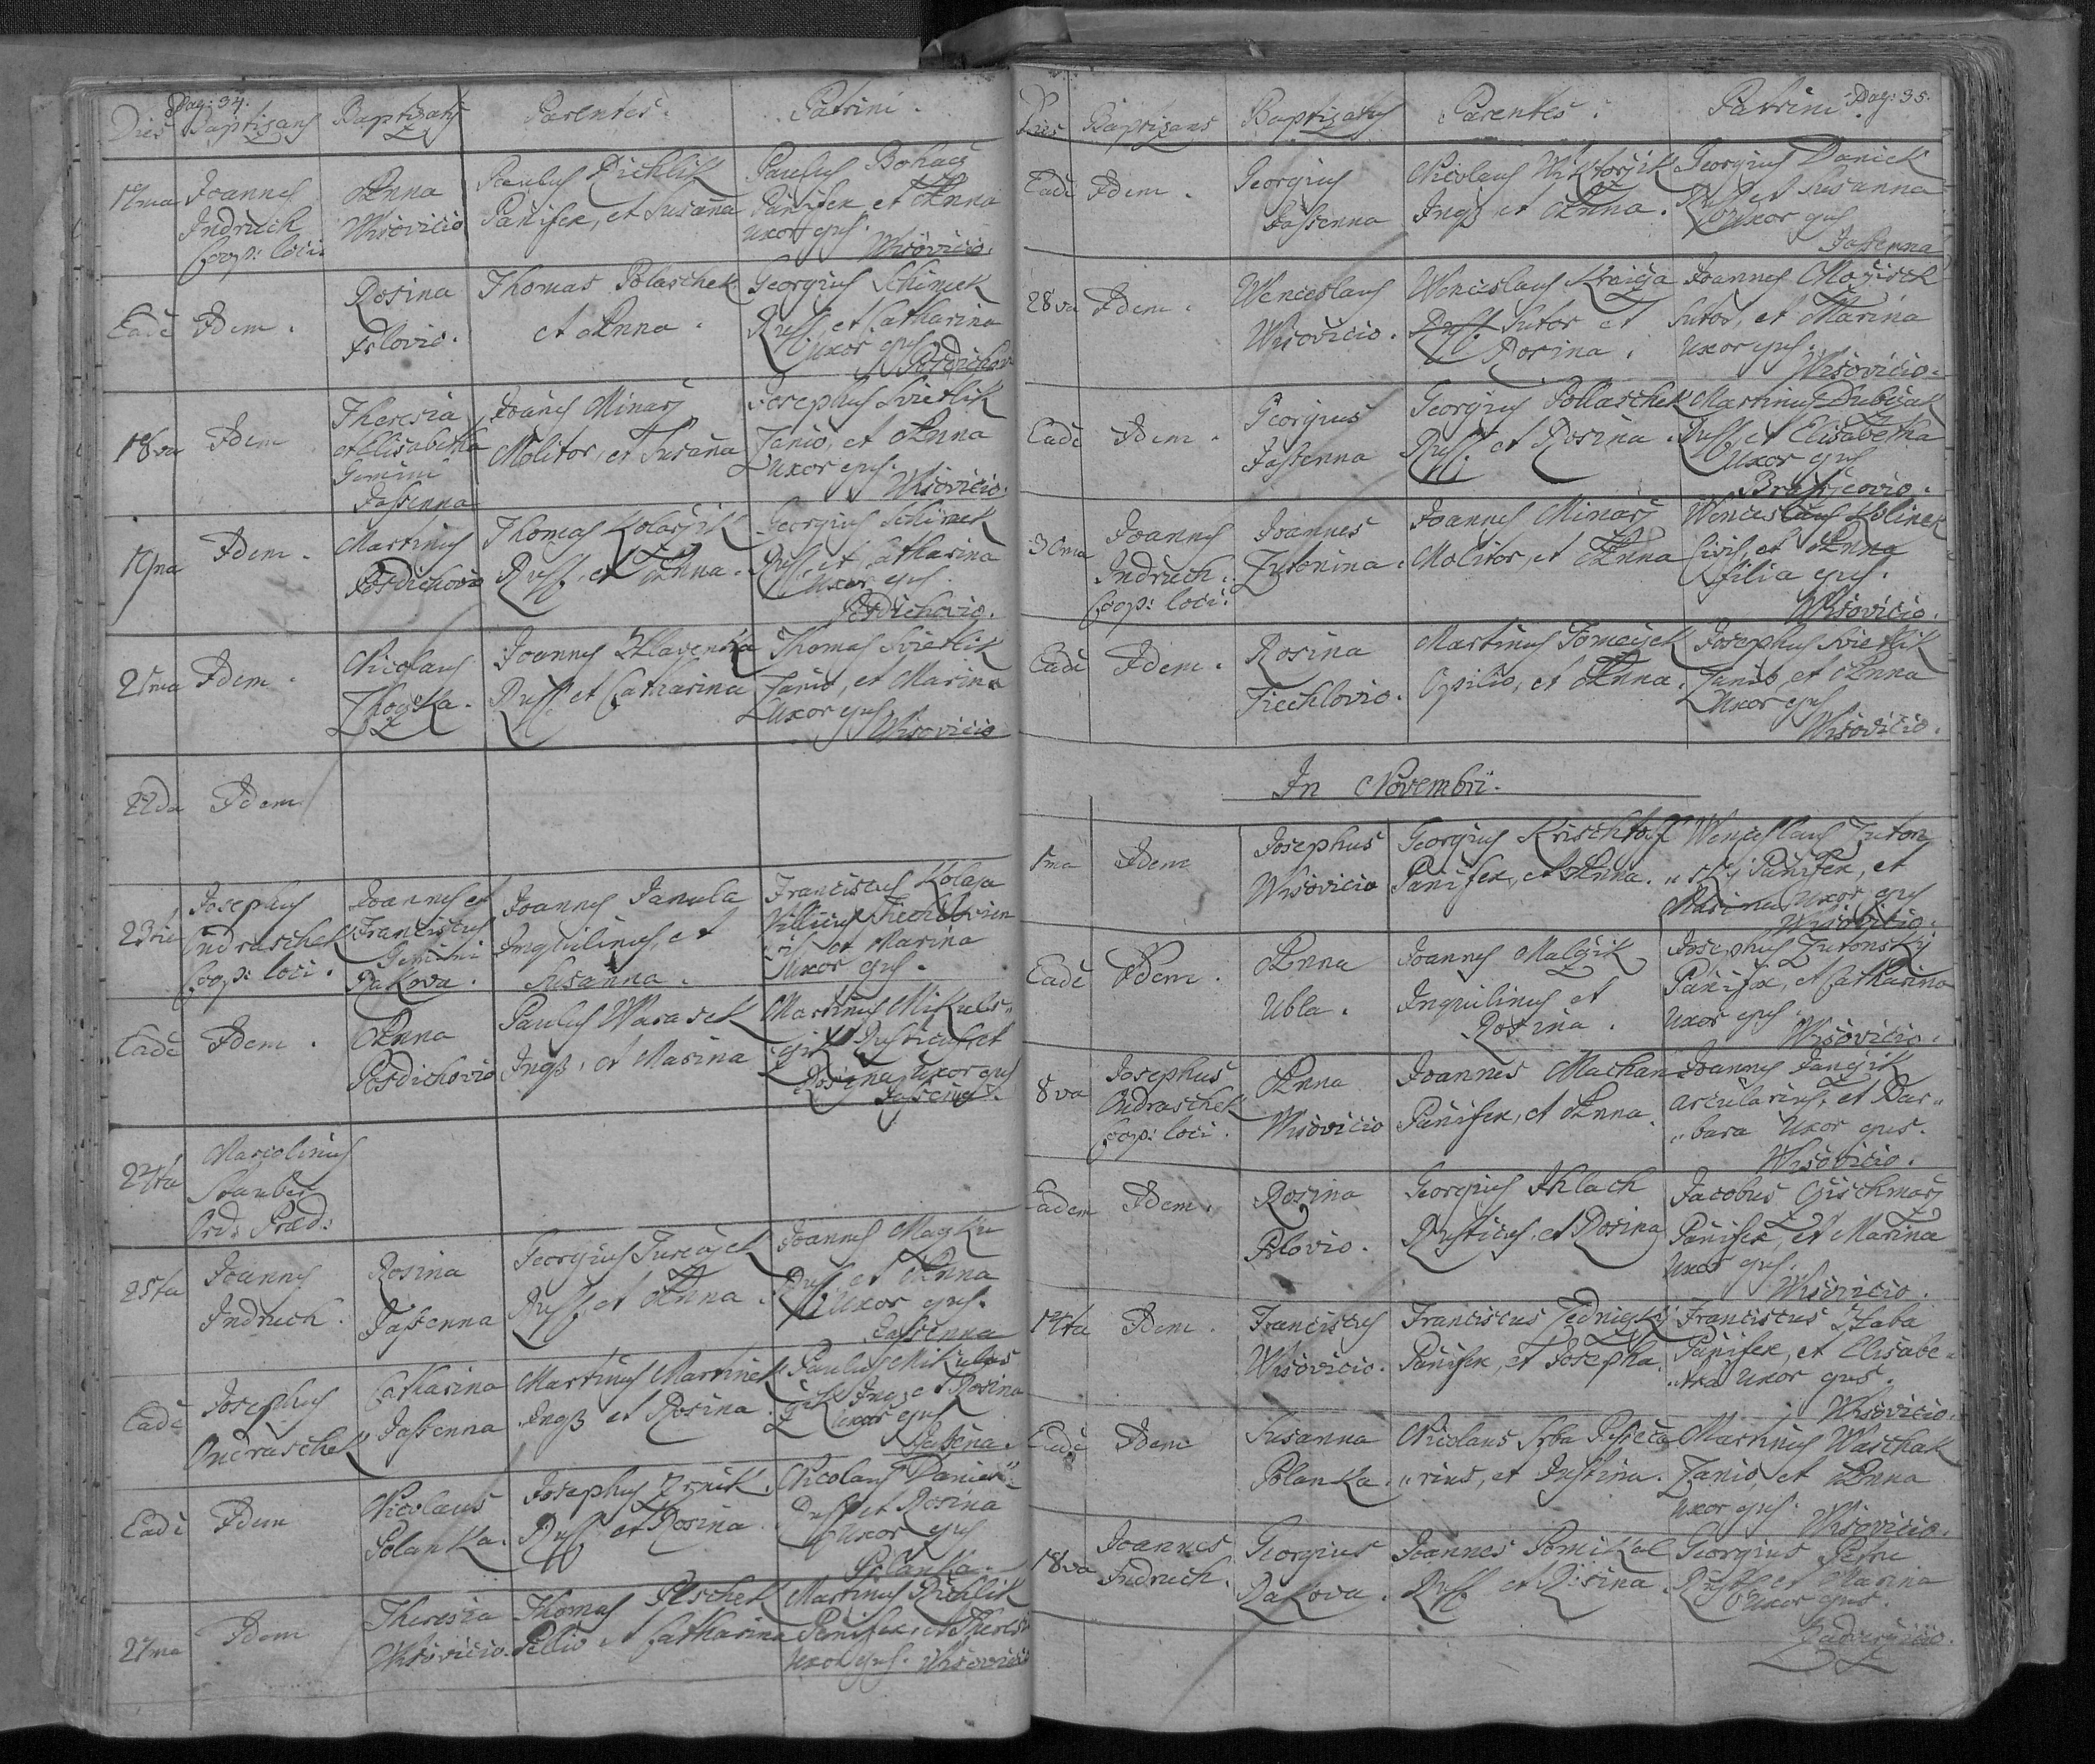 Pag: 34.
Dies Baptizans Baptizatus Parentes. Patrini.
17ma Joannes Indruch Coop: loci.
Anna Wisovicio
Paulus Richlik
Panifex, et Susanna
Paulus Bohacz
Panifex et Anna
uxor ejus.
Wisovicio.
Eadē Idem.
Rosina
Thomas Polaschek
et Anna.
Georgius Schimek
Rust, et Catharina
uxor ejus
18va Idem
Theresia
et Elisabetha
Gemini
Jassenna
Joannes Minarz
Molitor, et Susana
Josephus Svietlik
Lanio, et Anna
uxor ejus.
Wisovicio.
19na Idem.
Martinus
Thomas Kolarzik
Rust, et Anna.
Georgius Schimek
Rust, et Catharina
uxor ejus.
21ma Idem.
Nicolaus
Lhotka.
Joannes Hlavenka
Rust et Catharina
Thomas Svietlik
Lanio, et Marina
uxor ejus
Wisovicio
22da Idem
23tia Josephus
Ondraschek
Coop: loci.
Joannes et
Franciscus
Gemini
Rakova.
Joannes Janula
Inquilinus, et
Susanna.
Franciscus Kolaja
Villicus
et Marina
uxor ejus.
Eadē Idem.
Anna
Paulus Waraiek
Inqs, et Marina
Martinus Mikuls„
„czik Rusticus et
Rosina uxor ejus
24ta Marcolinus
Stauber
Ord: Præd:
25ta Joannes
Indruch.
Rosina
Jassenna
Georgius Tureczek
Rust, et Anna.
Joannes
Rust et Anna
uxor ejus.
Jassenna
Eadē Josephus
Ondraschek
Catharina
Jassenna
Martinus Martinek
Inqs et Rosina.
Paulus Mikulas
Inq: et Rosina
uxor ejus
Jassena.
Eadē Idem
Nicolaus
Polanka.
Josephus
Rust et Rosina.
Nicolaus Daniek
Rust et Rosina
uxor ejus
Polanka.
27ma Idem
Theresia
Wisovicio.
Thomas
Pellio et Catharina
Martinus Richlik
Panifex, et Theresia
uxor ejus. Wisovicio
Pag: 35.
Dies Baptizans Baptizatus Parentes. Patrini.
Eadē Idem.
Georgius
Jassenna
Nicolaus Wiktorzik
Inqs et Anna.
Georgius Daniek
Rust et Susanna
uxor ejus
Jassenna
28va Idem.
Wenceslaus
Wisovicio.
Wenceslaus Kraicza
Rust. Sutor et
Rosina.
Joannes Mozisek
Sutor, et Marina
uxor ejus.
Wisovicio.
Eadē Idem.
Georgius
Jassenna
Georgius Pollaschek
Rust. et Rosina.
Martinus Dubczak
Rust, et Elisabetha
uxor ejus
30ma Joannes
Indruch.
Coop: loci.
Joannes
Lutonina.
Joannes Minarz
Molitor, et Anna
Wenceslaus Kolinek
Civis, et Anna
filia ejus.
Wisovicio.
Eadē Idem.
Rosina
Martinus Tomeczek
Opilio, et Anna.
Josephus Svietlik
Lanio, et Anna
uxor ejus
Wisovicio.
In Novembri.
1ma Idem
Josephus
Wisovicio
Georgius Krischtof
Panifex, et Anna.
Wenceslaus Luton„
„sky Panifex, et
Marina uxor ejus
Wisovicio.
Eadē Idem.
Anna
Ubla.
Joannes Malczik
Inquilinus et
Rosina.
Josephus Lutonsky
Panifex, et Catharina
uxor ejus.
Wisovicio.
8va Josephus
Ondraschek
Coop: loci.
Anna
Wisovicio
Joannes Machan
Panifex, et Anna.
Joannes Janczik
Arcularius, et Bar„
„bara uxor ejus.
Wisovicio.
Eadem Idem.
Rosina
Georgius
Rusticus, et Rosina
Jacobus
Panifex, et Marina
uxor ejus.
Wisovicio.
14ta Idem.
Franciscus
Wisovicio.
Franciscus
Panifex, et Josepha.
Franciscus Zhaba
Panifex, et Elisabe„
„tha uxor ejus.
Wisovicio.
Eadē Idem
Susanna
Polanka.
Nicolaus Srba
„rius, et Justina.
Martinus Waschak
Lanio, et Anna
uxor ejus. Wisovicio.
18va Joannes
Indruch.
Georgius
Rakova.
Joannes Pomikal
Rust et Rosina.
Georgius Petru
Rust et Marina
uxor ejus.